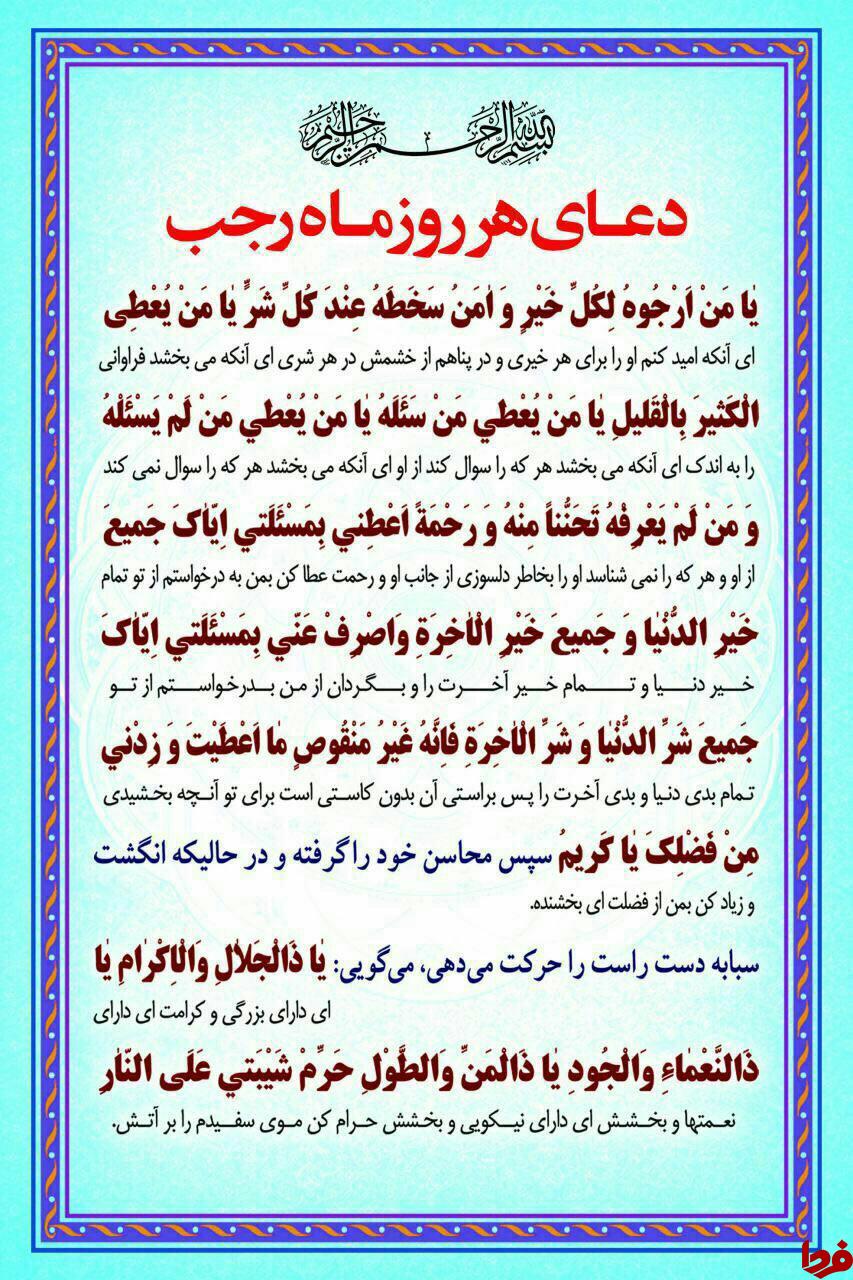 بسم الله الرحمن الرحیم
دعای هر روز ماه رجب
یٰا مَنْ اَرْجُوهُ لِکُلِّ خَیْرٍ وَ اٰمَنُ سَخَطَهُ عِنْدَ کُلِّ شَرٍّ یٰا مَنْ یُعْطِی
ای آنکه امید کنم او را برای هر خیری و در پناهم از خشمش در هر شری ای آنکه می بخشد فراوانی
الْکَثیرَ بِالْقَلیلِ یٰا مَنْ یُعْطي مَنْ سَئَلَهُ یٰا مَنْ یُعْطي مَنْ لَمْ یَسْئَلْهُ
را به اندک ای آنکه می بخشد هر که را سوال کند از او ای آنکه می بخشد هر که را سوال نمی کند
وَ مَنْ لَمْ یَعْرِفْهُ تَحَنُّناً مِنْهُ وَ رَحْمَةً اَعْطِني بِمَسْئَلَتي اِیّٰاکَ جَمیعَ
از او و هر که را نمی شناسد او را بخاطر دلسوزی از جانب او و رحمت عطا کن بمن به درخواستم از تو تمام
خَیْرِ الدُّنْیٰا وَ جَمیعَ خَیْرِ الْاٰخِرَةِ وَاصْرِفْ عَنّي بِمَسْئَلَتي اِیّٰاکَ
خیر دنیا و تمام خیر آخرت را و بگردان از من بدرخواستم از تو
جَمیعَ شَرِّ الدُّنْیٰا وَ شَرِّ الْاٰخِرَةِ فَاِنَّهُ غَیْرُ مَنْقُوصٍ مٰا اَعْطَیْتَ وَ زِدْني
تمام بدی دنیا و بدی آخرت را پس براستی آن بدون کاستی است برای تو آنچه بخشیدی
مِنْ فَضْلِکَ یٰا کَریمُ سپس محاسن خود را گرفته و در حالیکه انگشت
و زیاد کن بمن از فضلت ای بخشنده.
سبابه دست راست را حرکت می‌دهی، می‌گویی: یٰا ذَالْجَلاٰلِ وَالْاِکْرٰامِ یٰا
ای دارای بزرگی و کرامت ای دارای
ذَالنَّعْمٰاءِ وَالْجُودِ یٰا ذَالْمَنِّ وَالطَّوْلِ حَرِّمْ شَیْبَتي عَلَی النّٰارِ
نعمتها و بخشش ای دارای نیکویی و بخشش حرام کن موی سفیدم را بر آتش.
فردا